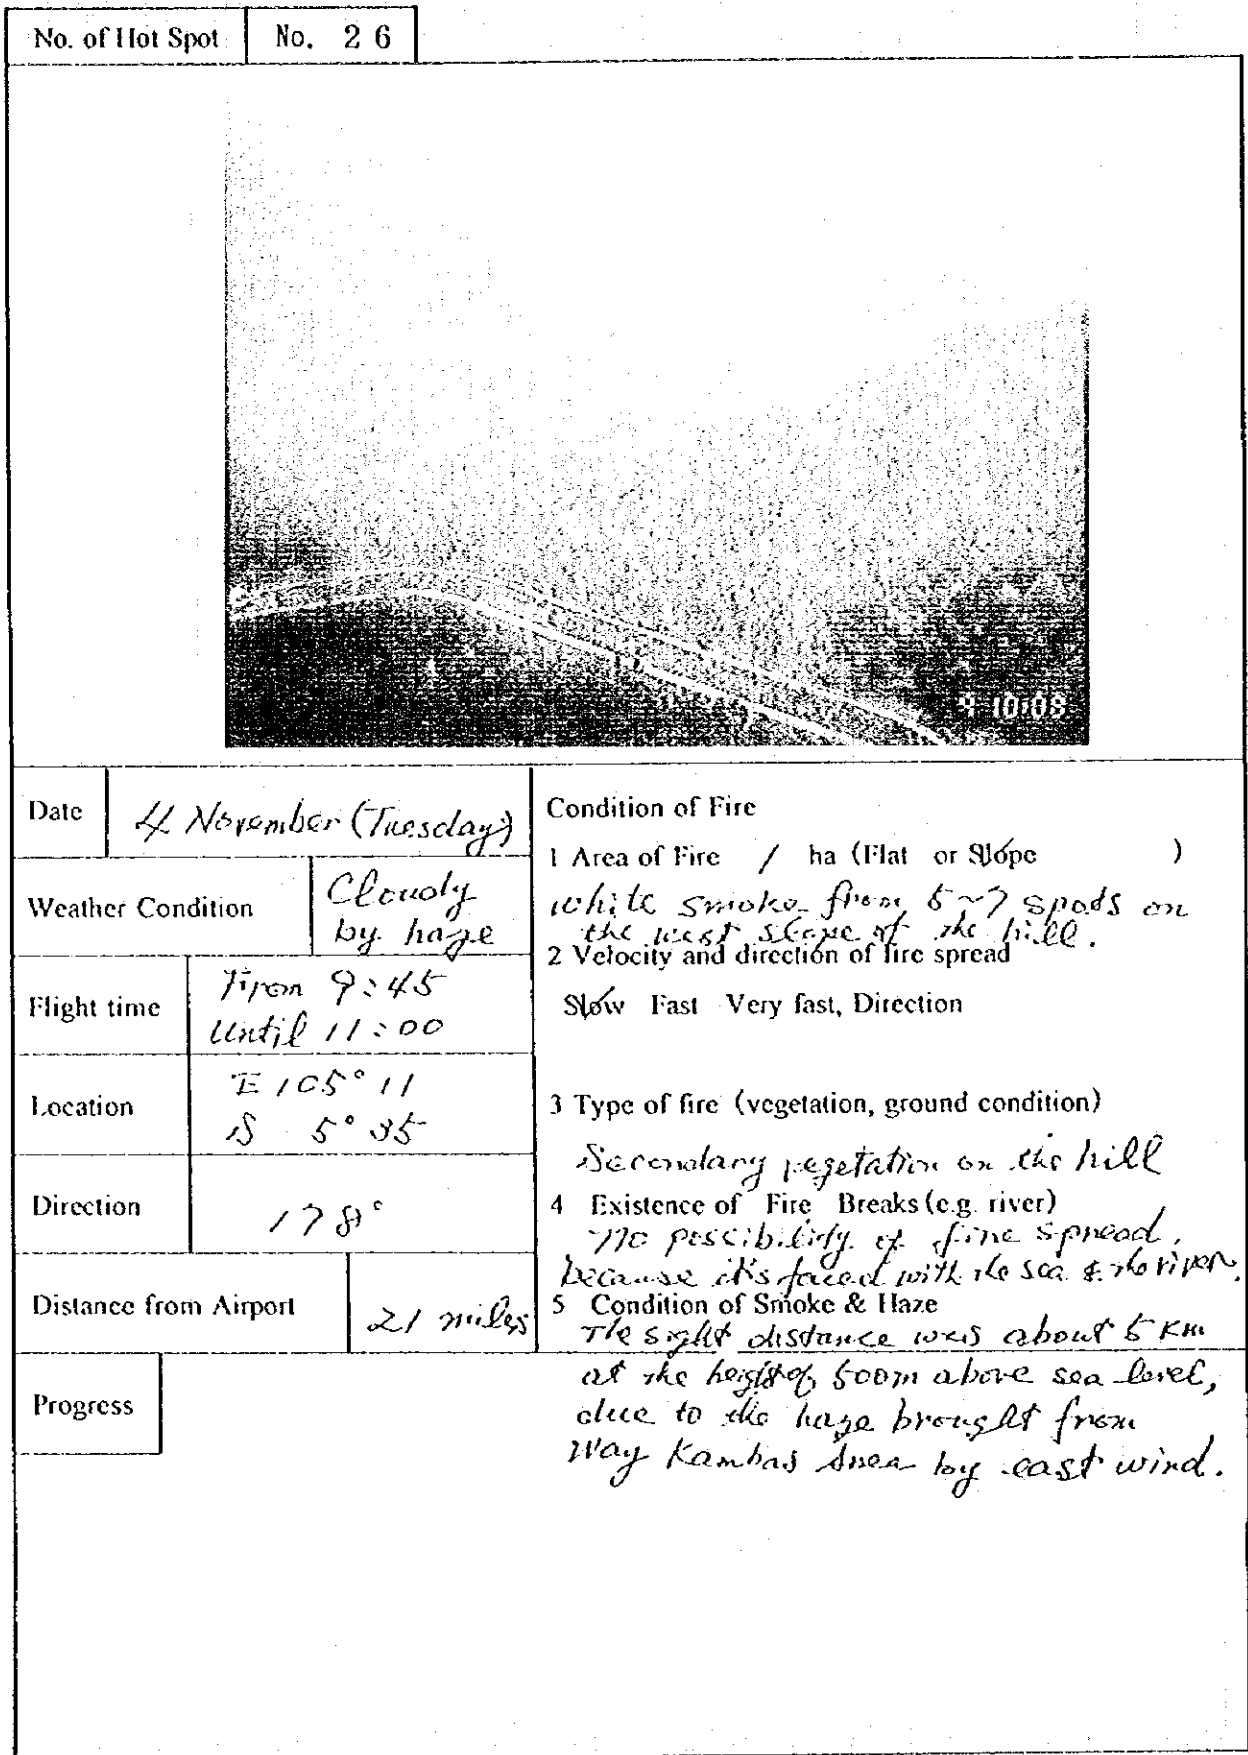 No. of Hot Spot No. 26
4 10:08
Date 4 November (Tuesday)
Weather Condition Cloudy
by haze
Flight time From 9:45
Until 11:00
Location E 105° 11
S 5° 35
Direction 178°
Distance from Airport 21 miles
Condition of Fire
1 Area of Fire / ha (Flat or Slope )
white smoke from 5~7 spods on
the west slope of the hill.
2 Velocity and direction of fire spread
Slow Fast Very fast, Direction
3 Type of fire (vegetation, ground condition)
Secondary vegetation on the hill
4 Existence of Fire Breaks (e.g. river)
No possibility of fire spread,
because it's faced with the sea & the river.
5 Condition of Smoke & Haze
The sight distance was about 5 Km
at the height of 500m above sea level,
due to the haze brought from
Way Kambas Area by east wind.
Progress